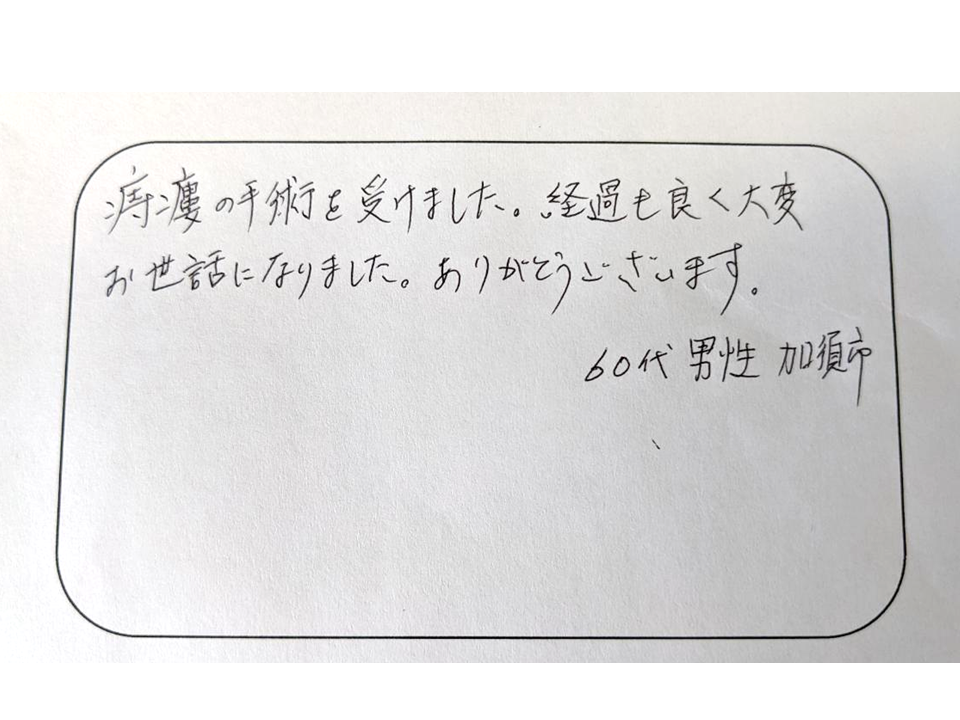 痔瘻の手術を受けました。経過も良く大変
お世話になりました。ありがとうございます。
60代 男性 加須市